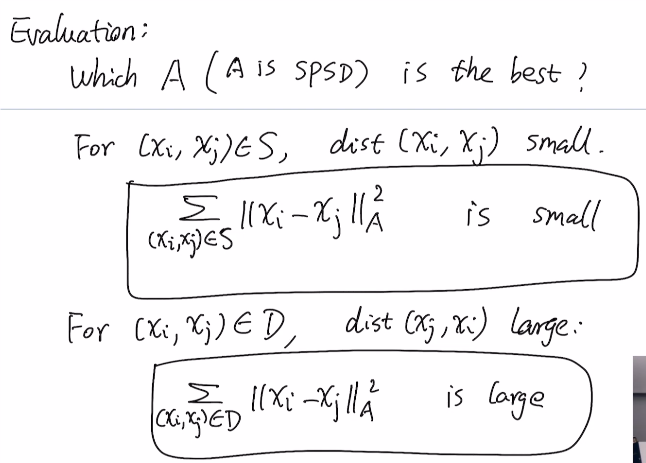 Evaluation:
Which A (A is SPSD) is the best?
For (xi, xj)∈S, dist (xi, xj) small.
∑(xi,xj)∈S ||xi - xj||²_A is small
For (xi, xj) ∈ D, dist (xj, xi) large:
∑(xi,xj)∈D ||xi - xj||²_A is large